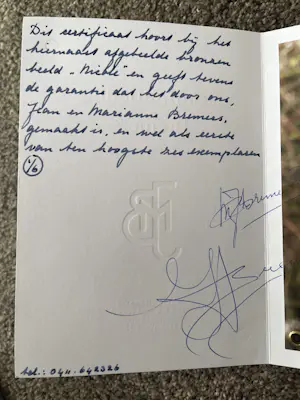 Dit certificaat hoort bij het
hiernaast afgebeelde bronzen
beeld „Niobé" en geeft tevens
de garantie dat het door ons,
Jean en Marianne Bremers,
gemaakt is, en wel als eerste
van ten hoogste zes exemplaren
1/6
Bremers
tel.: 04n-642326